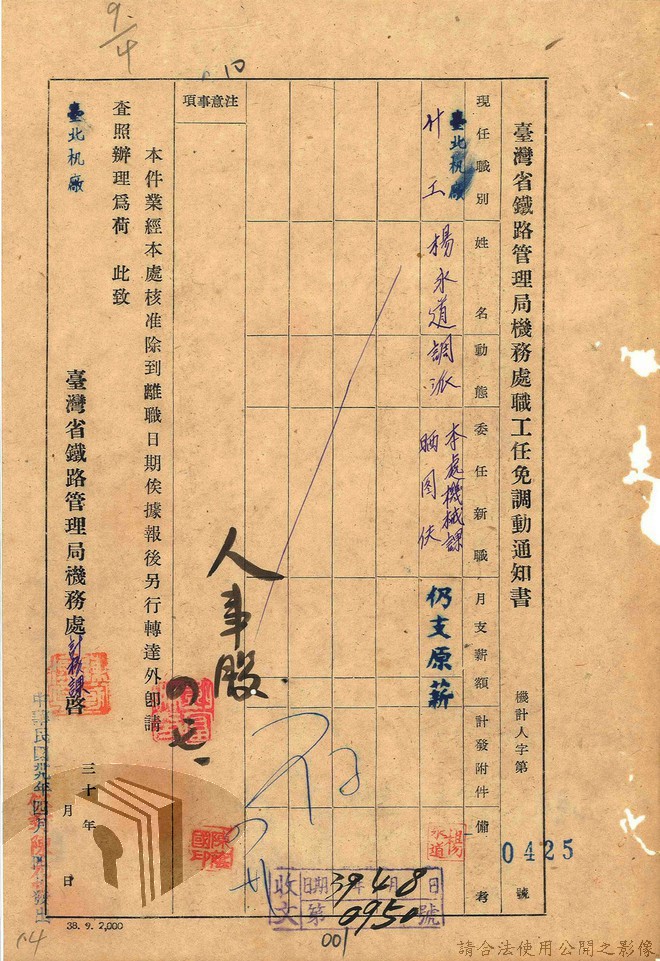 臺灣省鐵路管理局機務處職工任免調動通知書
機計人字第 0425 號
現任職別
姓名
動態
委任新職
月支薪額
計發附件
備考
臺北机廠
工
楊永道
調派
本處機械課
晒图伕
仍支原薪
楊永道
注意事項
本件業經本處核准除到離職日期俟據報後另行轉達外卽請
查照辦理爲荷 此致
臺北机廠
臺灣省鐵路管理局機務處計核課啓
三十年 月 日
人事股
收文 日期 39年4月8日
第0950號
38. 9. 2,000
001
9/4
10
請合法使用公開之影像